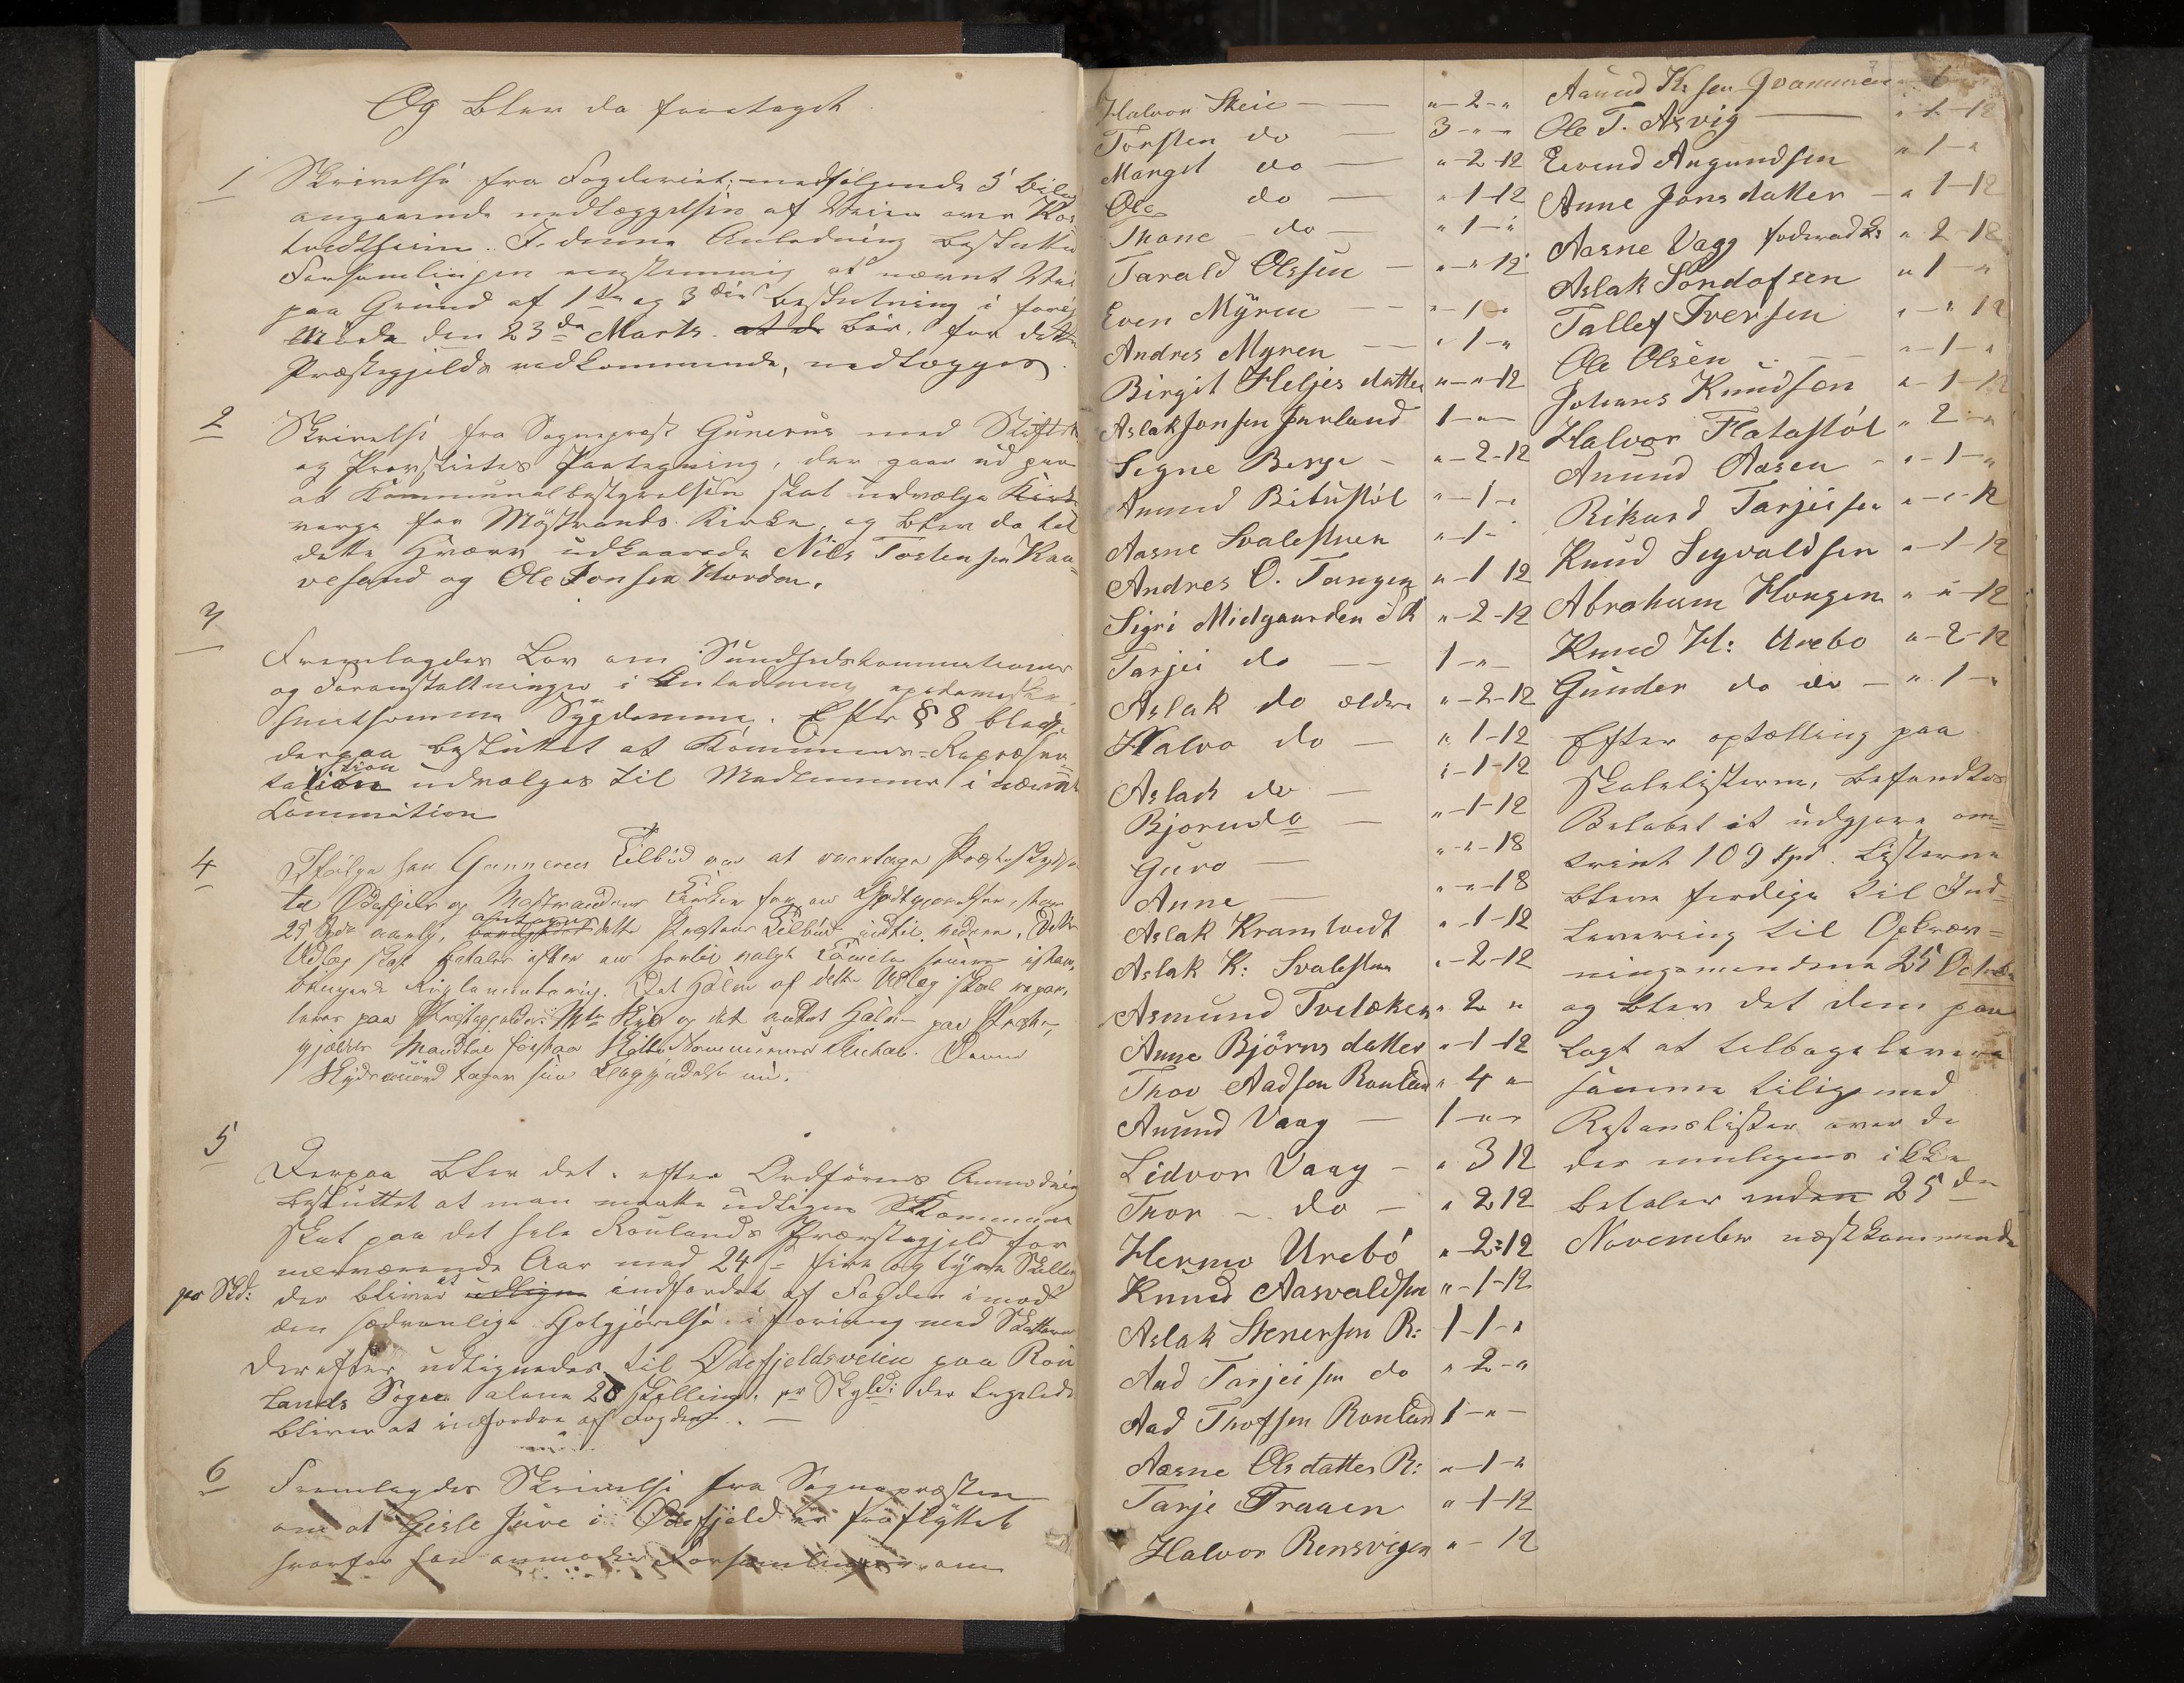 Og blev da foretaget
1 Skrivelse fra Fogderiet; medfølgende 5 Bilag
angaaende nedlæggelsen af Veien over Kos
tvedtheien. I denne Anledning besluttede
Forsamlingen eenstemmig at nævnt Vei
paa Grund af 1ste og 3die beslutning i forrige
Møde den 23de Marts. at de bør, for dette
Præstegjelds vedkommende, nedlægges.
2 Skrivelse fra Sognepræst Gunerus med Stiftets
og Provstiets Paategning, der gaar ud paa
at Kommunalbestyrelsen skal udvælge Kirke
verge for Møstrands Kirke, og blev da til
dette Hværv udkaarede Nils Tostensen Kaa=
vesand og Ole Jonsen Hovden.
3
Fremlagdes Lov om Sundhedskommissioner
og Foranstaltninger i Anledning epidemiske
smitsomme Sygdomme. Efter § 8 blev
derpaa besluttet at Kommune-Repræsen=
tation udvælges til Medlemmer i nævnt
Commission
4 Ifølge Hr Gunnerus Tilbud om at overtage Præsteskydsen
til Ødefjeld og Møstrandens Kirker for en Godtgjørelse, stor
25 Spd aarlig, antages dette Præstens Tilbud indtil videre. Dette
Udlæg skal betales efter en
Reglementering. Det Halve af dette Udlæg skal repar,
teres paa Præstegjeldets Skyld og det andet Halve paa Præste
gjældets Mandtal
Skydsmænd tager sin
5 Derpaa blev det, efter Ordførens Anmodning
besluttet at man maatte udligne Kommune
skat paa det hele Raulands Præstegjeld for
nærværende Aar med 24 s= fire og tyve Skilling
pr Skd: der bliver at udligne indfordret af Fogden imod
den sædvanlige Godgjørelse i forening med Skatterne
Derefter udlignedes til Ødefjeldsveien paa Rau
lands Sogn alene 28 skilling pr Skyld: der ligeledes
bliver at indfordre af Fogden. —
6 Fremlagdes Skrivelse fra Sognepræsten
om at Gisle Juve i Ødefjeld er fraflyttet
hvorfor han anmoder Forsamlingen om
Halvor Skeie — „-2-„
Torsten do — 3-„-
Margit do — „-2-12
Ole do — „1-12
Thone - do — „1-„
Tarald Olssen — „-„12
Even Myren — „-1-
Andres Myren — „1-„
Birgit Heljesdatter „-„-12
Aslak Jonsen Jurland 1-„-
Signe Berge - „-2-12
Anund Bitustöl „-1-„
Aasne Svalestuen „-1-
Andres O. Tangen „-1 12
Sigri Midgaarden „-2-12
Tarjei do — 1-„-
Aslak do ældre „-2-12
Halvo do — „1-12
Aslach do — „-1-12
Bjørn do — „-1-12
Guro — „-„-18
Anne — „-„-18
Aslak Kramtvedt „-1-12
Aslak K: Svalestuen „-2-12
Asmund Tvetæken „2 „
Anne Björnsdatter „-1-12
Thov Aadsen Rauland „-4 „
Anund Vaag — 1-„-
Lidvor Vaag - „312
Thor - do - „212
Hermo Urebö „-2-12
Knud Aasvaldsen „-1-12
Aslak Stenersen R: 1-1-„
Aad Tarjeisen do „2-„
Aad Thofsen Rauland 1-„-
Aasne Olsdatter R: „-1-„
Tarje Traaen „-1-12
Halvor Rensvigen „- 12
Aanund K: sen Qvammen
Ole T. Asvig — „1-12
Eivend Augundsen „1-„
Anne Jonsdatter - „1-12
Aasne Vaag „2-12
Aslak Sondofsen „1-„
Tallef Iversen „-„12
Ole Olsen „-1-„
Johans Knudsen „-1-12
Halvor Flatastöl „2-„
Anund Aasen - „-1-„
Rikard Tarjeisen „-„-12
Knud Sigvaldsen „-1-12
Abraham Haugen „-„-12
Knud H: Urebo „-2-12
Gunder do do — „1-„
Efter optælling paa
Skatelisterne, befandtes
Beløbet at udgjøre om=
trint 109 Spd. Listerne
bleve færdige til Ind=
levering til Opkræv=
ningsmændene 25 Octobr
og blev det dem paa
lagt at tilbagelevere
samme tillige med
Restanslister over de
der muligens ikke
betaler inden 25de
November næstkommende